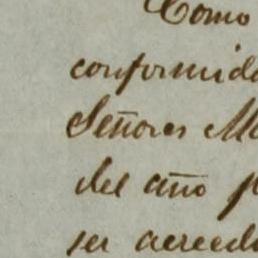 Como
conformida
Señores M
del año p
ser acreed